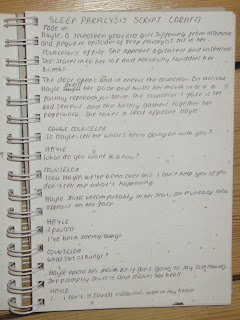 SLEEP PARALYSIS SCRIPT (DRAFT)
Fade in
Hayle, a seventeen year old girl suffering from insomnia
and frequent episodes of sleep paralysis sits in her
counselor's office. She appears agitated and
She stares into her lap and nervously twiddles her
thumbs.
The door opens and in enters the counselor. On arrival
Hayle her gaze and moves her mouth in to a
for the counselor's face is set
and serious and she hastily gathers together her
paperwork. She takes a seat opposite Hayle.
COUNSELOR
So Hayle, tell me what's been going on with you?
HAYLE
What do you want to know?
COUNSELOR
Look Hayle, we've been over this. I can't help you if you
don't tell me what's happening.
Hayle uncomfortably in her seat, an uneasy look
appears on her face.
HAYLE
(Pauses)
I've been seeing things.
COUNSELOR
What sort of things?
Hayle opens her mouth as if she's going to say something.
She promptly shuts it and shakes her head.
HAYLE
I.. I can't. It sounds ridiculous even in my head